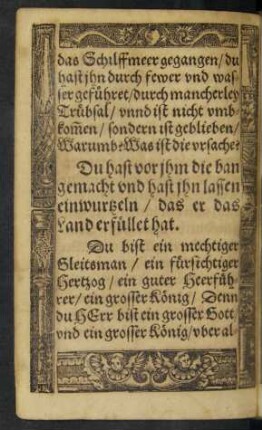 das Schilffmeer gegangen / du
hast jhn durch fewer vnd was-
ser geführet / durch mancherley
Trübsal / vnnd ist nicht vmb-
kom̃en / sondern ist geblieben /
Warumb? Was ist die vrsache?
Du hast vor jhm die ban
gemacht vnd hast jhn lassen
einwurtzeln / das er das
Land erfüllet hat.
Du bist ein mechtiger
Gleitsman / ein fürsichtiger
Hertzog / ein guter Heerfüh-
rer / ein grosser König / Denn
du HErr bist ein grosser Gott
vnd ein grosser König / vber al-